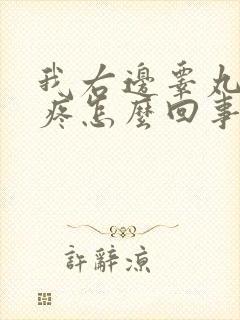 我右邊睾丸
疼怎麼回事
許辭涼